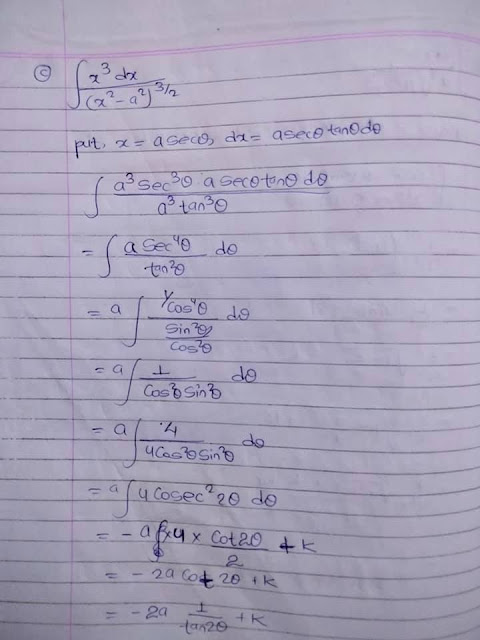 c ∫ x³ dx / (x² - a²)^3/2
put, x = a secθ, dx = a secθ tanθ dθ
∫ a³ sec³θ a secθ tanθ dθ / a³ tan³θ
= ∫ a sec⁴θ / tan²θ dθ
= a ∫ 1/cos⁴θ / sin²θ/cos²θ dθ
= a ∫ 1 / cos²θ sin²θ dθ
= a ∫ 4 / 4cos²θ sin²θ dθ
= a ∫ 4 cosec² 2θ dθ
= - a × 4 × cot2θ / 2 + k
= - 2a cot 2θ + k
= - 2a 1 / tan2θ + k